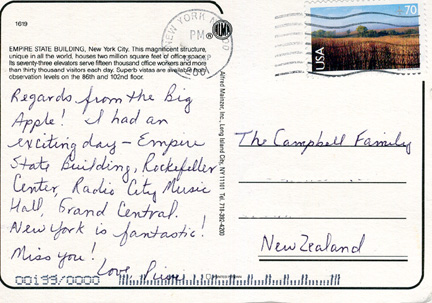 1619
EMPIRE STATE BUILDING, New York City. This magnificent structure,
unique in all the world, houses two million square feet of office space.
Its seventy-three elevators serve fifteen thousand office workers and more
than thirty thousand visitors each day. Superb vistas are available from
observation levels on the 86th and 102nd floor.
Regards from the Big
Apple! I had an
exciting day – Empire
State Building, Rockefeller
Center, Radio City Music
Hall, Grand Central.
New York is fantastic!
Miss you!
Love,
00199/0000
NEW YORK
PM
Alfred Mainzer, Inc., Long Island City, NY 11101 Tel. 718-392-4200
70
USA
The Campbell Family
New Zealand